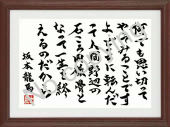 何でも思い切って
やってみることです
よ。どっちに転んだ
って人間、野辺の
石ころ同然骨と
なって一生を終
えるのだから
坂本龍馬